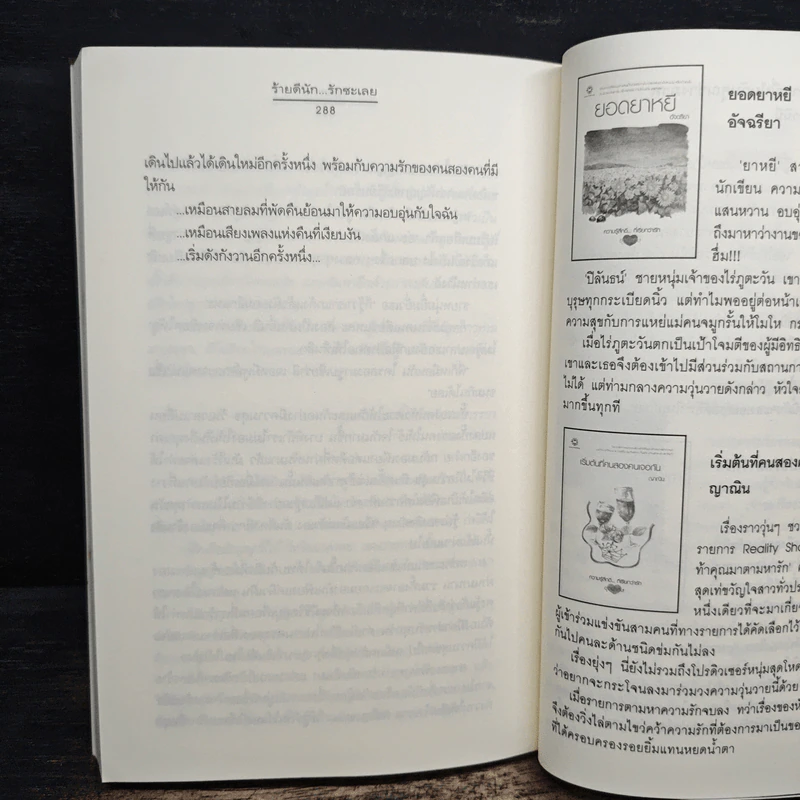 ร้ายดีนัก...รักซะเลย
288
เดินไปแล้วได้เดินใหม่อีกครั้งหนึ่ง พร้อมกับความรักของคนสองคนที่มี
ให้กัน
...เหมือนสายลมที่พัดคืนย้อนมาให้ความอบอุ่นกับใจฉัน
...เหมือนเสียงเพลงแห่งคืนที่เงียบงัน
...เริ่มดังกังวานอีกครั้งหนึ่ง...
ยอดยาหยี
อัจฉรียา
ความรู้สึกดี... ที่เรียกว่ารัก
ยอดยาหยี
อัจฉรียา
'ยาหยี'
นักเขียน
แสนหวาน
ถึงมาหาว่างาน
ฮึ่ม!!!
'ปีลันธน์' ชายหนุ่มเจ้าของไร่ภูตะวัน
บุรุษทุกกระเบียดนิ้ว แต่ทำไมพออยู่ต่อหน้า
ความสุขกับการแหย่แม่คนจมูกรั้นให้โมโห
เมื่อไร่ภูตะวันตกเป็นเป้าโจมตีของผู้มี
เขาและเธอจึงต้องเข้าไปมีส่วนร่วมกับ
ไม่ได้ แต่ท่ามกลางความวุ่นวายดังกล่าว
มากขึ้นทุกที
เริ่มต้นที่คนสองคนเจอกัน
ญาณิน
ความรู้สึกดี... ที่เรียกว่ารัก
เริ่มต้นที่คนสอง
ญาณิน
เรื่องราววุ่นๆ
รายการ Reality
ท้าคุณมาตามหารัก'
สุดเท่ขวัญใจสาวทั่ว
หนึ่งเดียวที่จะมา
ผู้เข้าร่วมแข่งขันสามคนที่ทางรายการได้คัดเลือกไว้
กันไปคนละด้านชนิดข่มกันไม่ลง
เรื่องยุ่งๆ นี่ยังไม่รวมถึงโปรดิวเซอร์หนุ่มสุดโหด
ว่าอยากจะกระโจนลงมาร่วมวงความวุ่นวายนี้ด้วย
เมื่อรายการตามหาความรักจบลง ทว่าเรื่องของ
จึงต้องวิ่งไล่ตามไขว่คว้าความรักที่ต้องการมาเป็น
ที่ได้ครอบครองรอยยิ้มแทนหยดน้ำตา